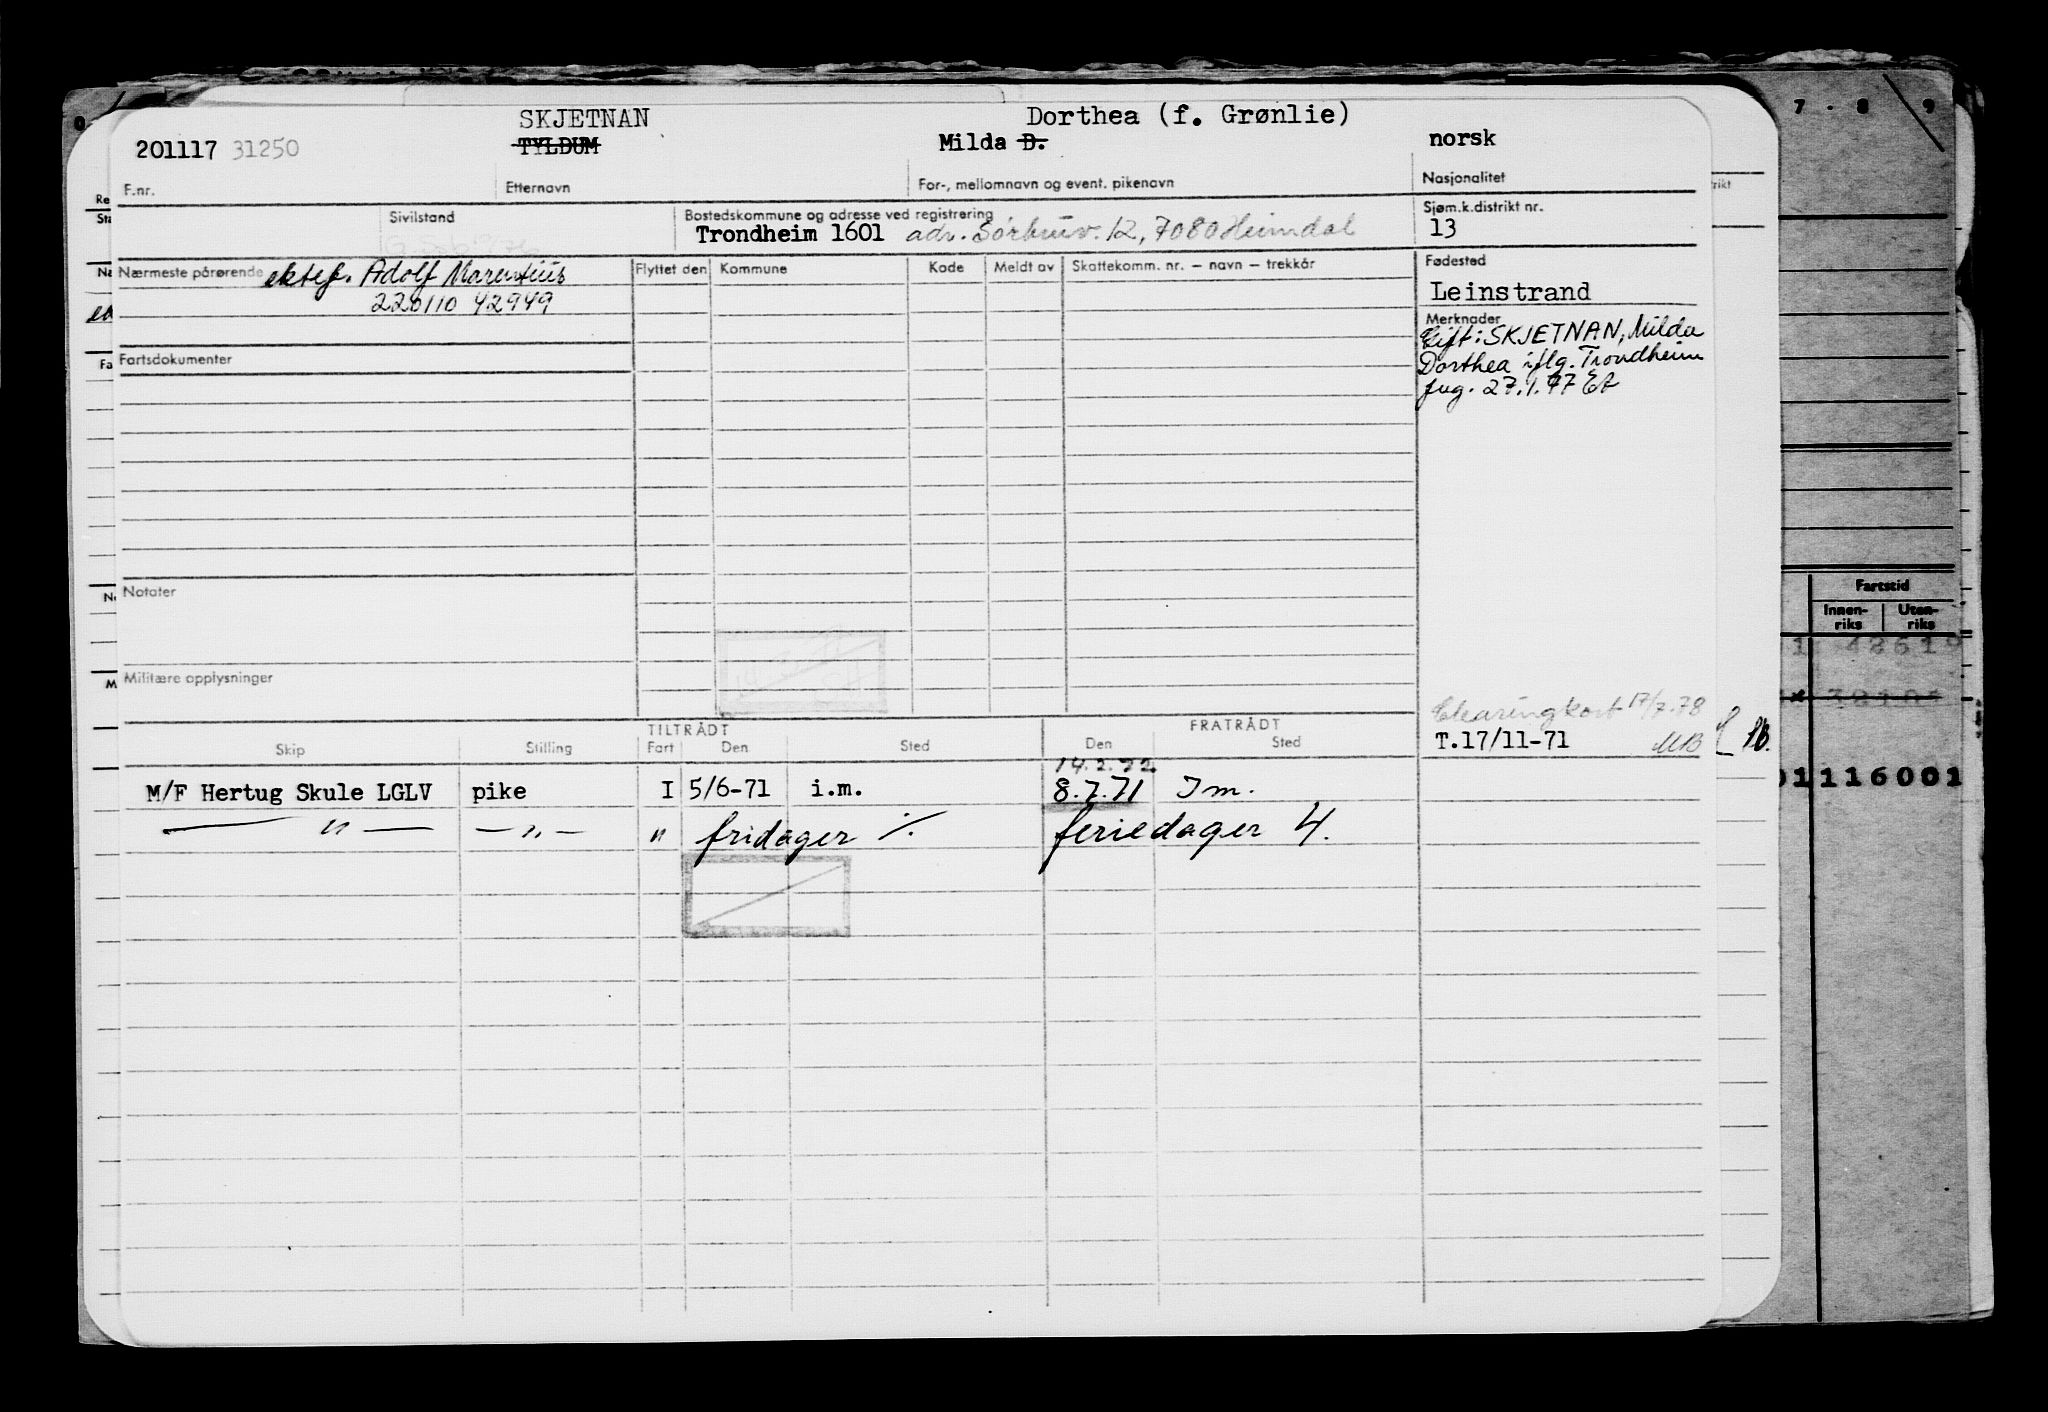 7 - 8 9
SKJETNAN Dorthea (f. Grønlie)
201117 31250 TYLDUM Milda D. norsk
F.nr. Etternavn For-, mellomnavn og event. pikenavn Nasjonalitet
Sivilstand Bostedskommune og adresse ved registrering Sjøm.k.distrikt nr.
Trondheim 1601 adr. 12, 7080 Heimdal 13
Nærmeste pårørende ektef. Adolf Marentius Flyttet den Kommune Kode Meldt av Skattekomm. nr. — navn — trekkår Fødested
220110 42949 Leinstrand
Merknader
Gift: SKJETNAN, Milda
Fartsdokumenter Dorthea iflg. Trondheim
fug. 27.1.77 EA
Notater
Fartstid
Innen-riks Uten-riks
Militære opplysninger
Clearingkort 17/7.78
T.17/11-71 MB
TILTRÅDT FRATRÅDT
Skip Stilling Fart Den Sted Den Sted
14.2.72
M/F Hertug Skule LGLV pike I 5/6-71 i.m. 8.7.71 Im.
— " — — " — " fridager ·/. feriedager 4.
01116001